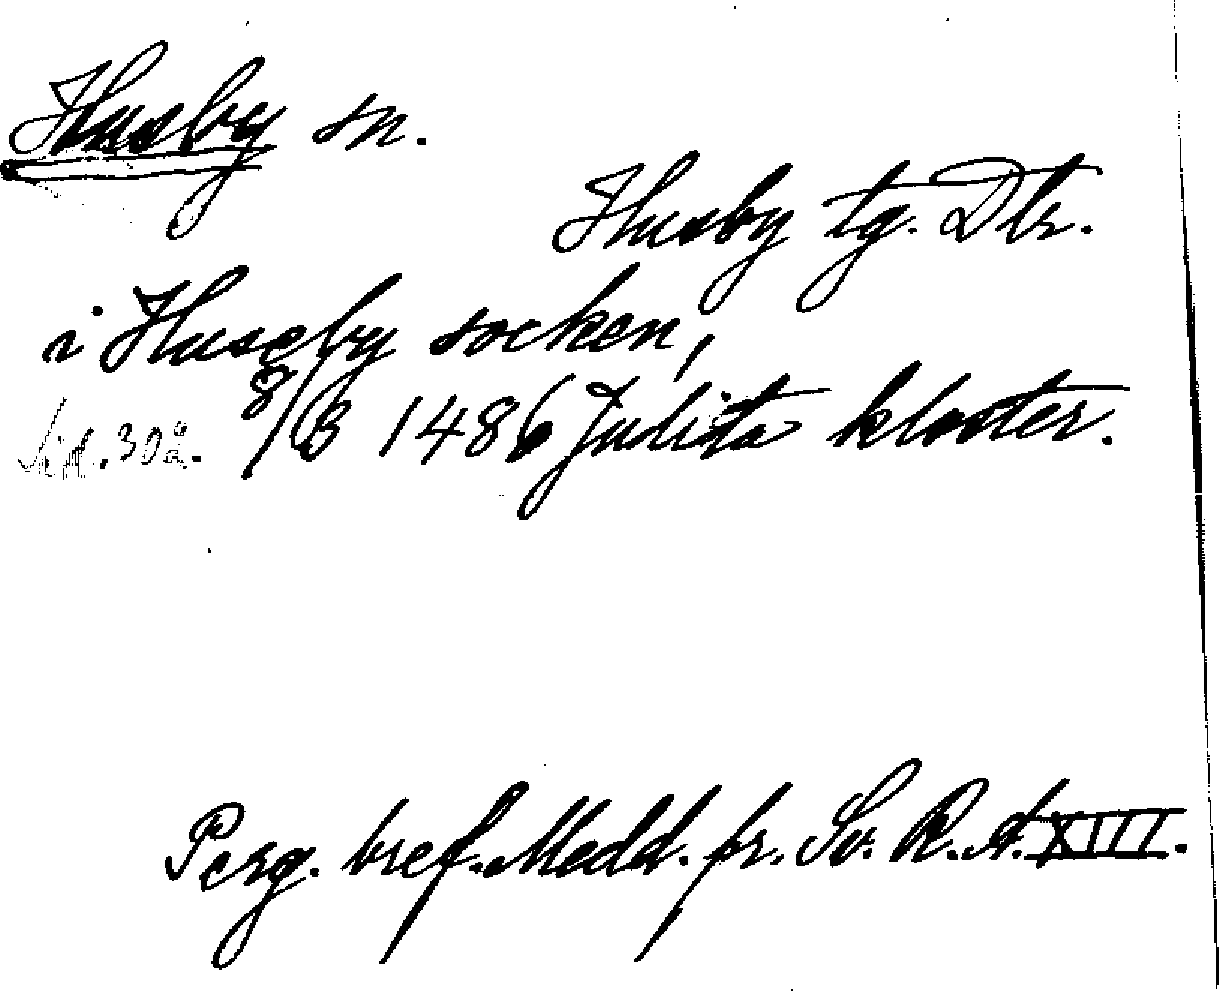 Husby sn.
Husby tg. Dlr.
i Huseby socken,
sid. 302. 8/3 1486 Julita kloster.
Perg. bref. Medd. fr. Sv. R. A. XIII.